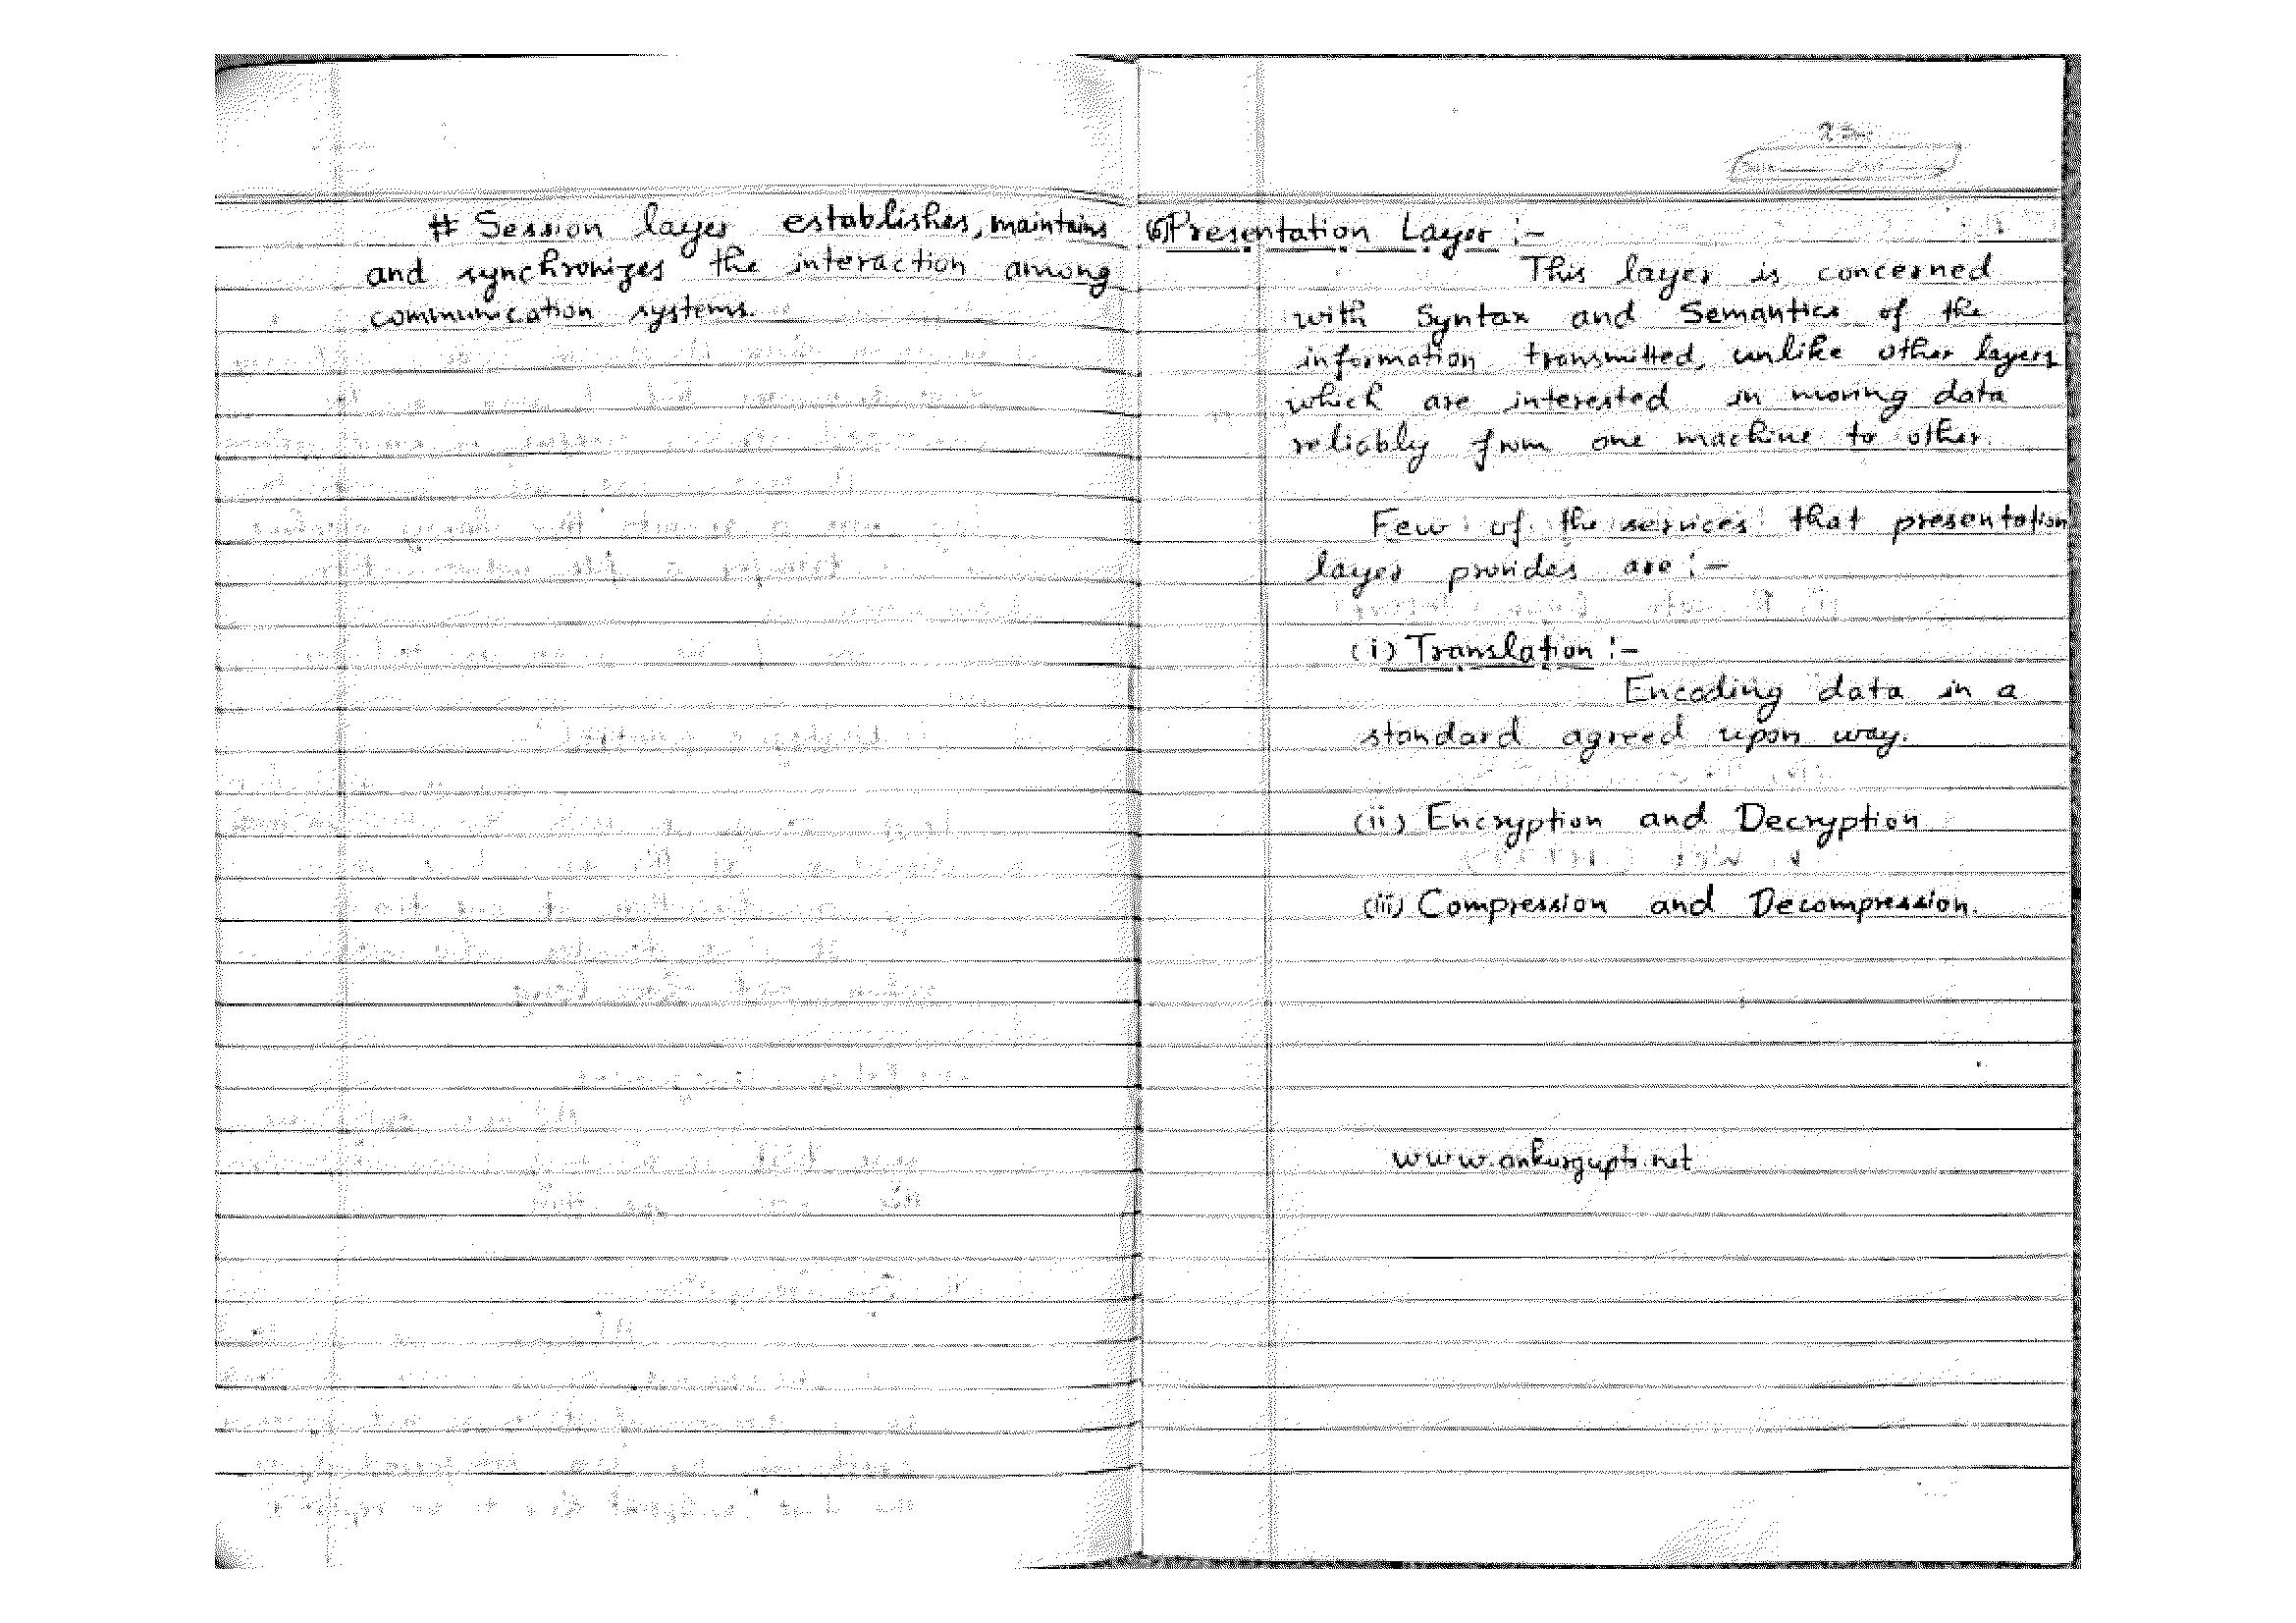 # Session layer establishes, maintains
and synchronizes the interaction among
communication systems.
(6) Presentation Layer :-
This layer is concerned
with Syntax and Semantics of the
information transmitted, unlike other layers
which are interested in moving data
reliably from one machine to other.
Few of the services that presentation
layer provides are :-
(i) Translation :-
Encoding data in a
standard agreed upon way.
(ii) Encryption and Decryption
(iii) Compression and Decompression.
www.ankurgupta.net